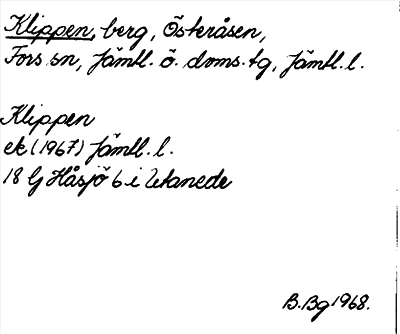 Klippen, berg, Österåsen,
Fors sn, Jämtl. ö. doms.tg, Jämtl. l.
Klippen
ek (1967) Jämtl. l.
18 G Håsjö 6 i Utanede
B.Bg 1968.